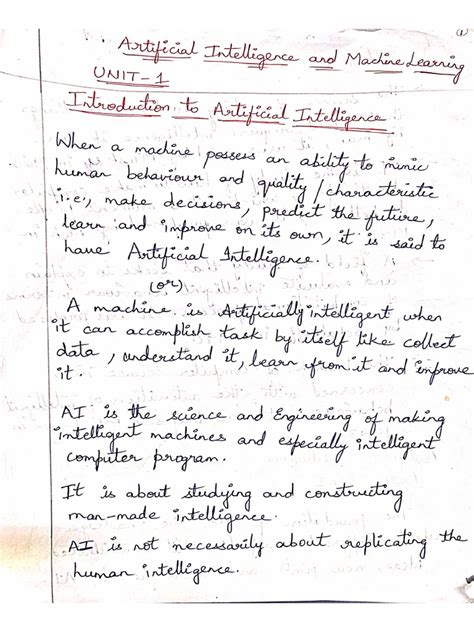 1
Artificial Intelligence and Machine Learning
UNIT-1
Introduction to Artificial Intelligence
When a machine possess an ability to mimic
human behaviour and quality/characteristic
i.e, make decisions, predict the future,
learn and improve on its own, it is said to
have Artificial Intelligence.
(or)
A machine is Artificially intelligent when
it can accomplish task by itself like collect
data, understand it, learn from it and improve
it.
AI is the science and Engineering of making
intelligent machines and especially intelligent
computer program.
It is about studying and constructing
man-made intelligence.
AI is not necessarily about replicating the
human intelligence.